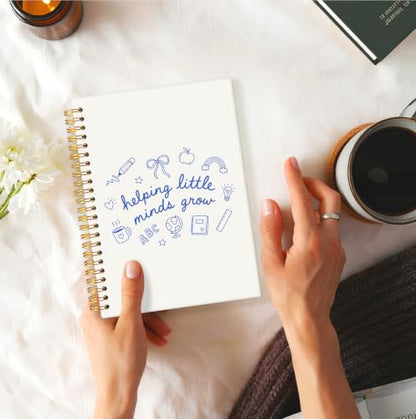 helping little
minds grow
ABC